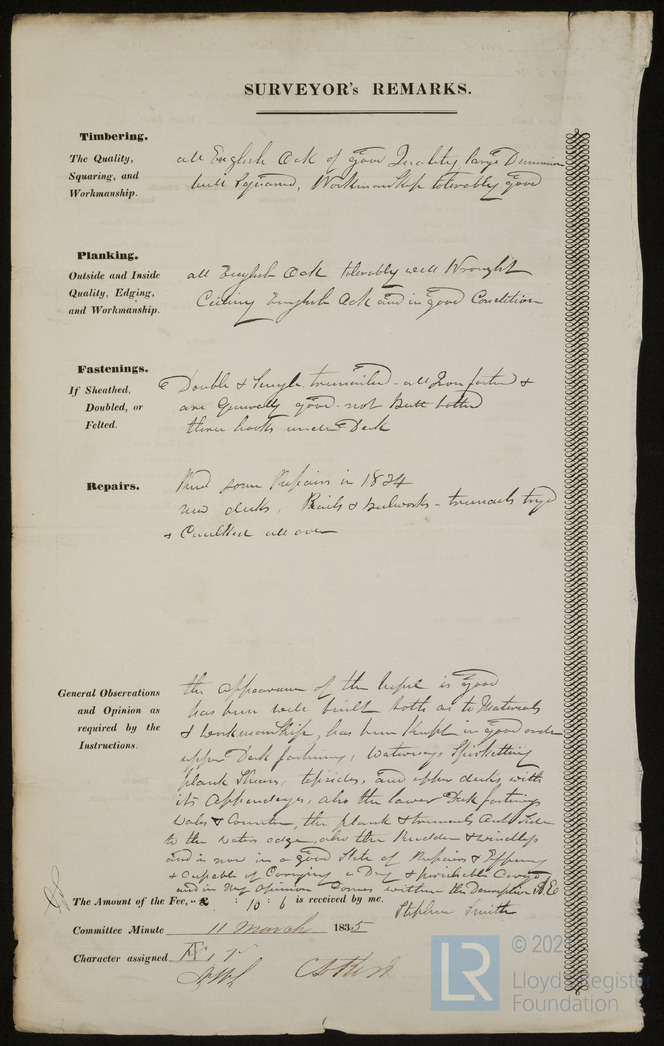 SURVEYOR's REMARKS.
Timbering.
The Quality,
Squaring, and
Workmanship.
all English Oak of good Quality, large
well Squared, Workmanship tolerably good
Planking.
Outside and Inside
Quality, Edging,
and Workmanship.
all English Oak tolerably well Wrought
English Oak and in good Condition
Fastenings.
If Sheathed,
Doubled, or
Felted.
Double & Single treenailed - all Iron fastend &
are Generally good - not Butt bolted
three hooks under Deck
Repairs.
Had some Repairs in 1834
new decks, Rails & bulwarks - treenails tryd
& Caulked all over
General Observations
and Opinion as
required by the
Instructions.
the appearance of the vessel is good
has been well built both as to Materials
& workmanship, has been Kept in good order
upper Deck fastenings, waterways Spirketting
plank Shears, topsides, and upper decks with
its Appendages, also the lower Deck fastenings
Wales & Counter, the plank & treenails outside
to the waters edge, also the Rudder & windlass
and is now in a good State of Repairs &
& Capable of Carrying a Dry & perishable Cargo
and in my opinion Comes within the Description Æ
The Amount of the Fee, £ : 10 : 6 is received by me.
Stephen Smith
Committee Minute 11 March 1835
Character assigned Æ 1
LR
© 202
Lloyd's Register
Foundation